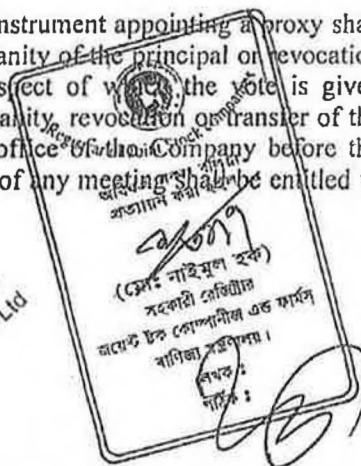 nstrument appointing a proxy sha
anity of the principal or revocatio
spect of which the vote is give
anity, revocation or transfer of th
office of the Company before th
of any meeting shall be entitled
Ltd
(মোঃ নাইমুল হক)
সহকারী রেজিষ্ট্রার
জয়েন্ট ষ্টক কোম্পানীজ এন্ড ফার্মস
বাণিজ্য মন্ত্রণালয়।